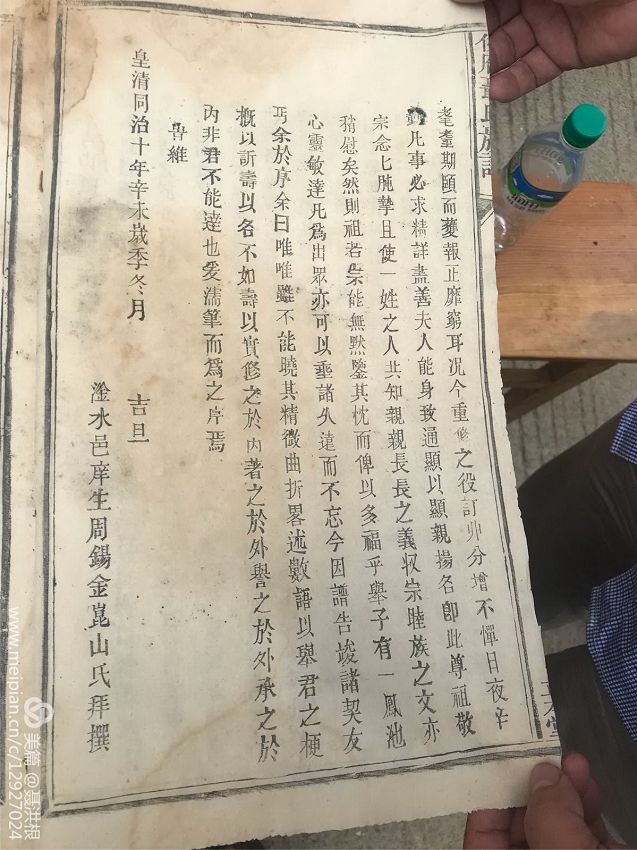 耄耋期頤而藎報正靡窮耳況今重修之役訂卯分增不憚日夜辛
凡事必求精詳盡善夫人能身致通顯以顯親揚名卽此尊祖敬
宗念七肫摯且使一姓之人共知親親長長之義收宗睦族之文亦
稍慰矣然則祖若宗能無默鑒其忱而俾以多福乎舉子有一鳳池
心靈敏達凡為出眾亦可以垂諸久遠而不忘今因譜告竣諸契友
丐余於序余曰唯唯雖不能曉其精微曲折畧述數語以舉君之梗
概以祈壽以名不如壽以實修之於內著之於外譽之於外承之於
內非君不能達也爰濡筆而為之序焉
旹維
皇清同治十年辛未歲季冬月 吉旦
滏水邑庠生周錫金崑山氏拜撰
氏族譜
堂
www.meipian.cn/c/12927024
美篇 @聂洪根